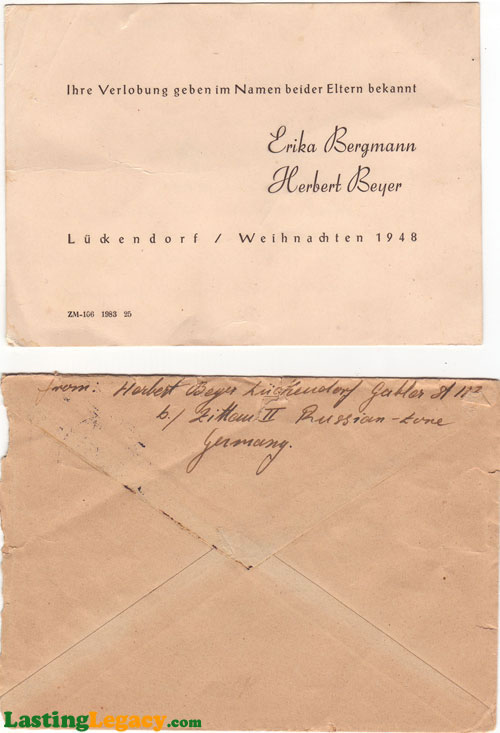 Ihre Verlobung geben im Namen beider Eltern bekannt
Erika Bergmann
Herbert Beyer
Lückendorf / Weihnachten 1948
ZM-166 1983 25
From: Herbert Beyer Lückendorf Gabler
b/ Zittau II Russian-zone
Germany.
LastingLegacy.com